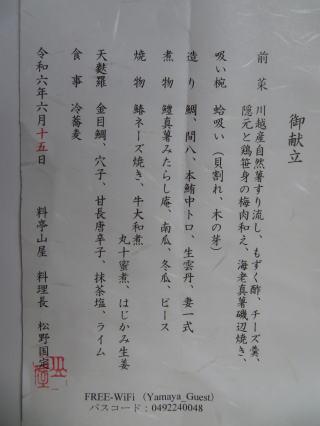 御献立
前菜 川越産自然薯すり流し、もずく酢、チーズ羹、
隠元と鶏笹身の梅肉和え、海老真薯磯辺焼き、
吸い椀 蛤吸い(貝割れ、木の芽)
造り 鯛、間八、本鮪中トロ、生雲丹、妻一式
煮物 鱧真薯みたらし庵、南瓜、冬瓜、ピース
焼物 鰆ネーズ焼き、牛大和煮
丸十蜜煮、はじかみ生姜
天麩羅 金目鯛、穴子、甘長唐辛子、抹茶塩、ライム
食事 冷蕎麦
令和六年六月十五日 料亭山屋 料理長 松野国定
FREE-WiFi (Yamaya_Guest)
パスコード:0492240048